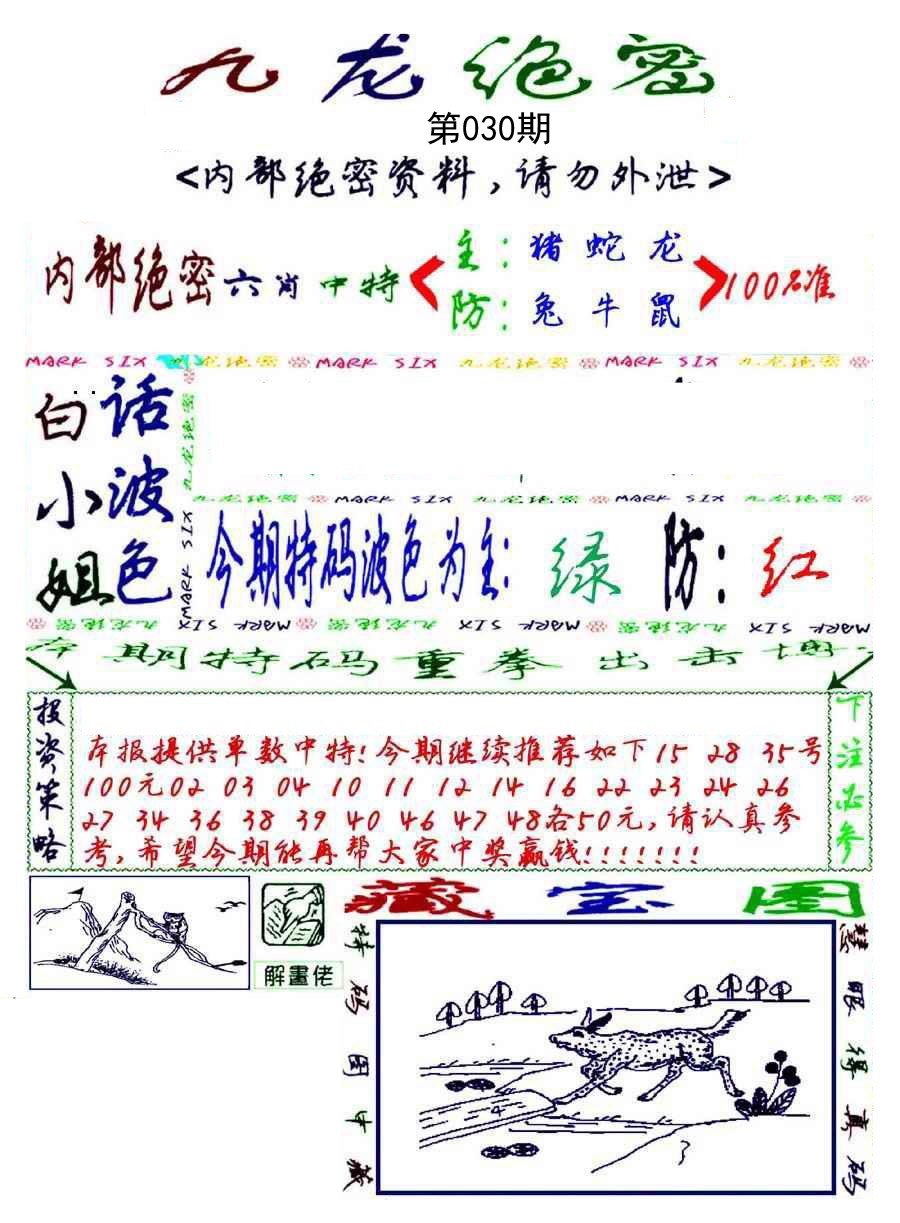 九龙绝密
第030期
<内部绝密资料,请勿外泄>
内部绝密六肖中特
主:猪蛇龙
防:兔牛鼠
100%准
MARK SIX 九龙绝密 MARK SIX 九龙绝密 MARK SIX
白小姐
话波色
九龙绝密 MARK SIX
九龙绝密 MARK SIX 九龙绝密 MARK SIX 九龙绝密
今期特码波色为主:绿 防:红
九龙绝密 MARK SIX 九龙绝密 MARK SIX 九龙绝密 MARK SIX
本期特码重拳出击
投资策略
本报提供单数中特!今期继续推荐如下15 28 35号
100元02 03 04 10 11 12 14 16 22 23 24 26
27 34 36 38 39 40 46 47 48各50元,请认真参
考,希望今期能再帮大家中奖赢钱!!!!!!!
下注必参
解畫佬
藏宝图
特码图中藏
慧眼得真码